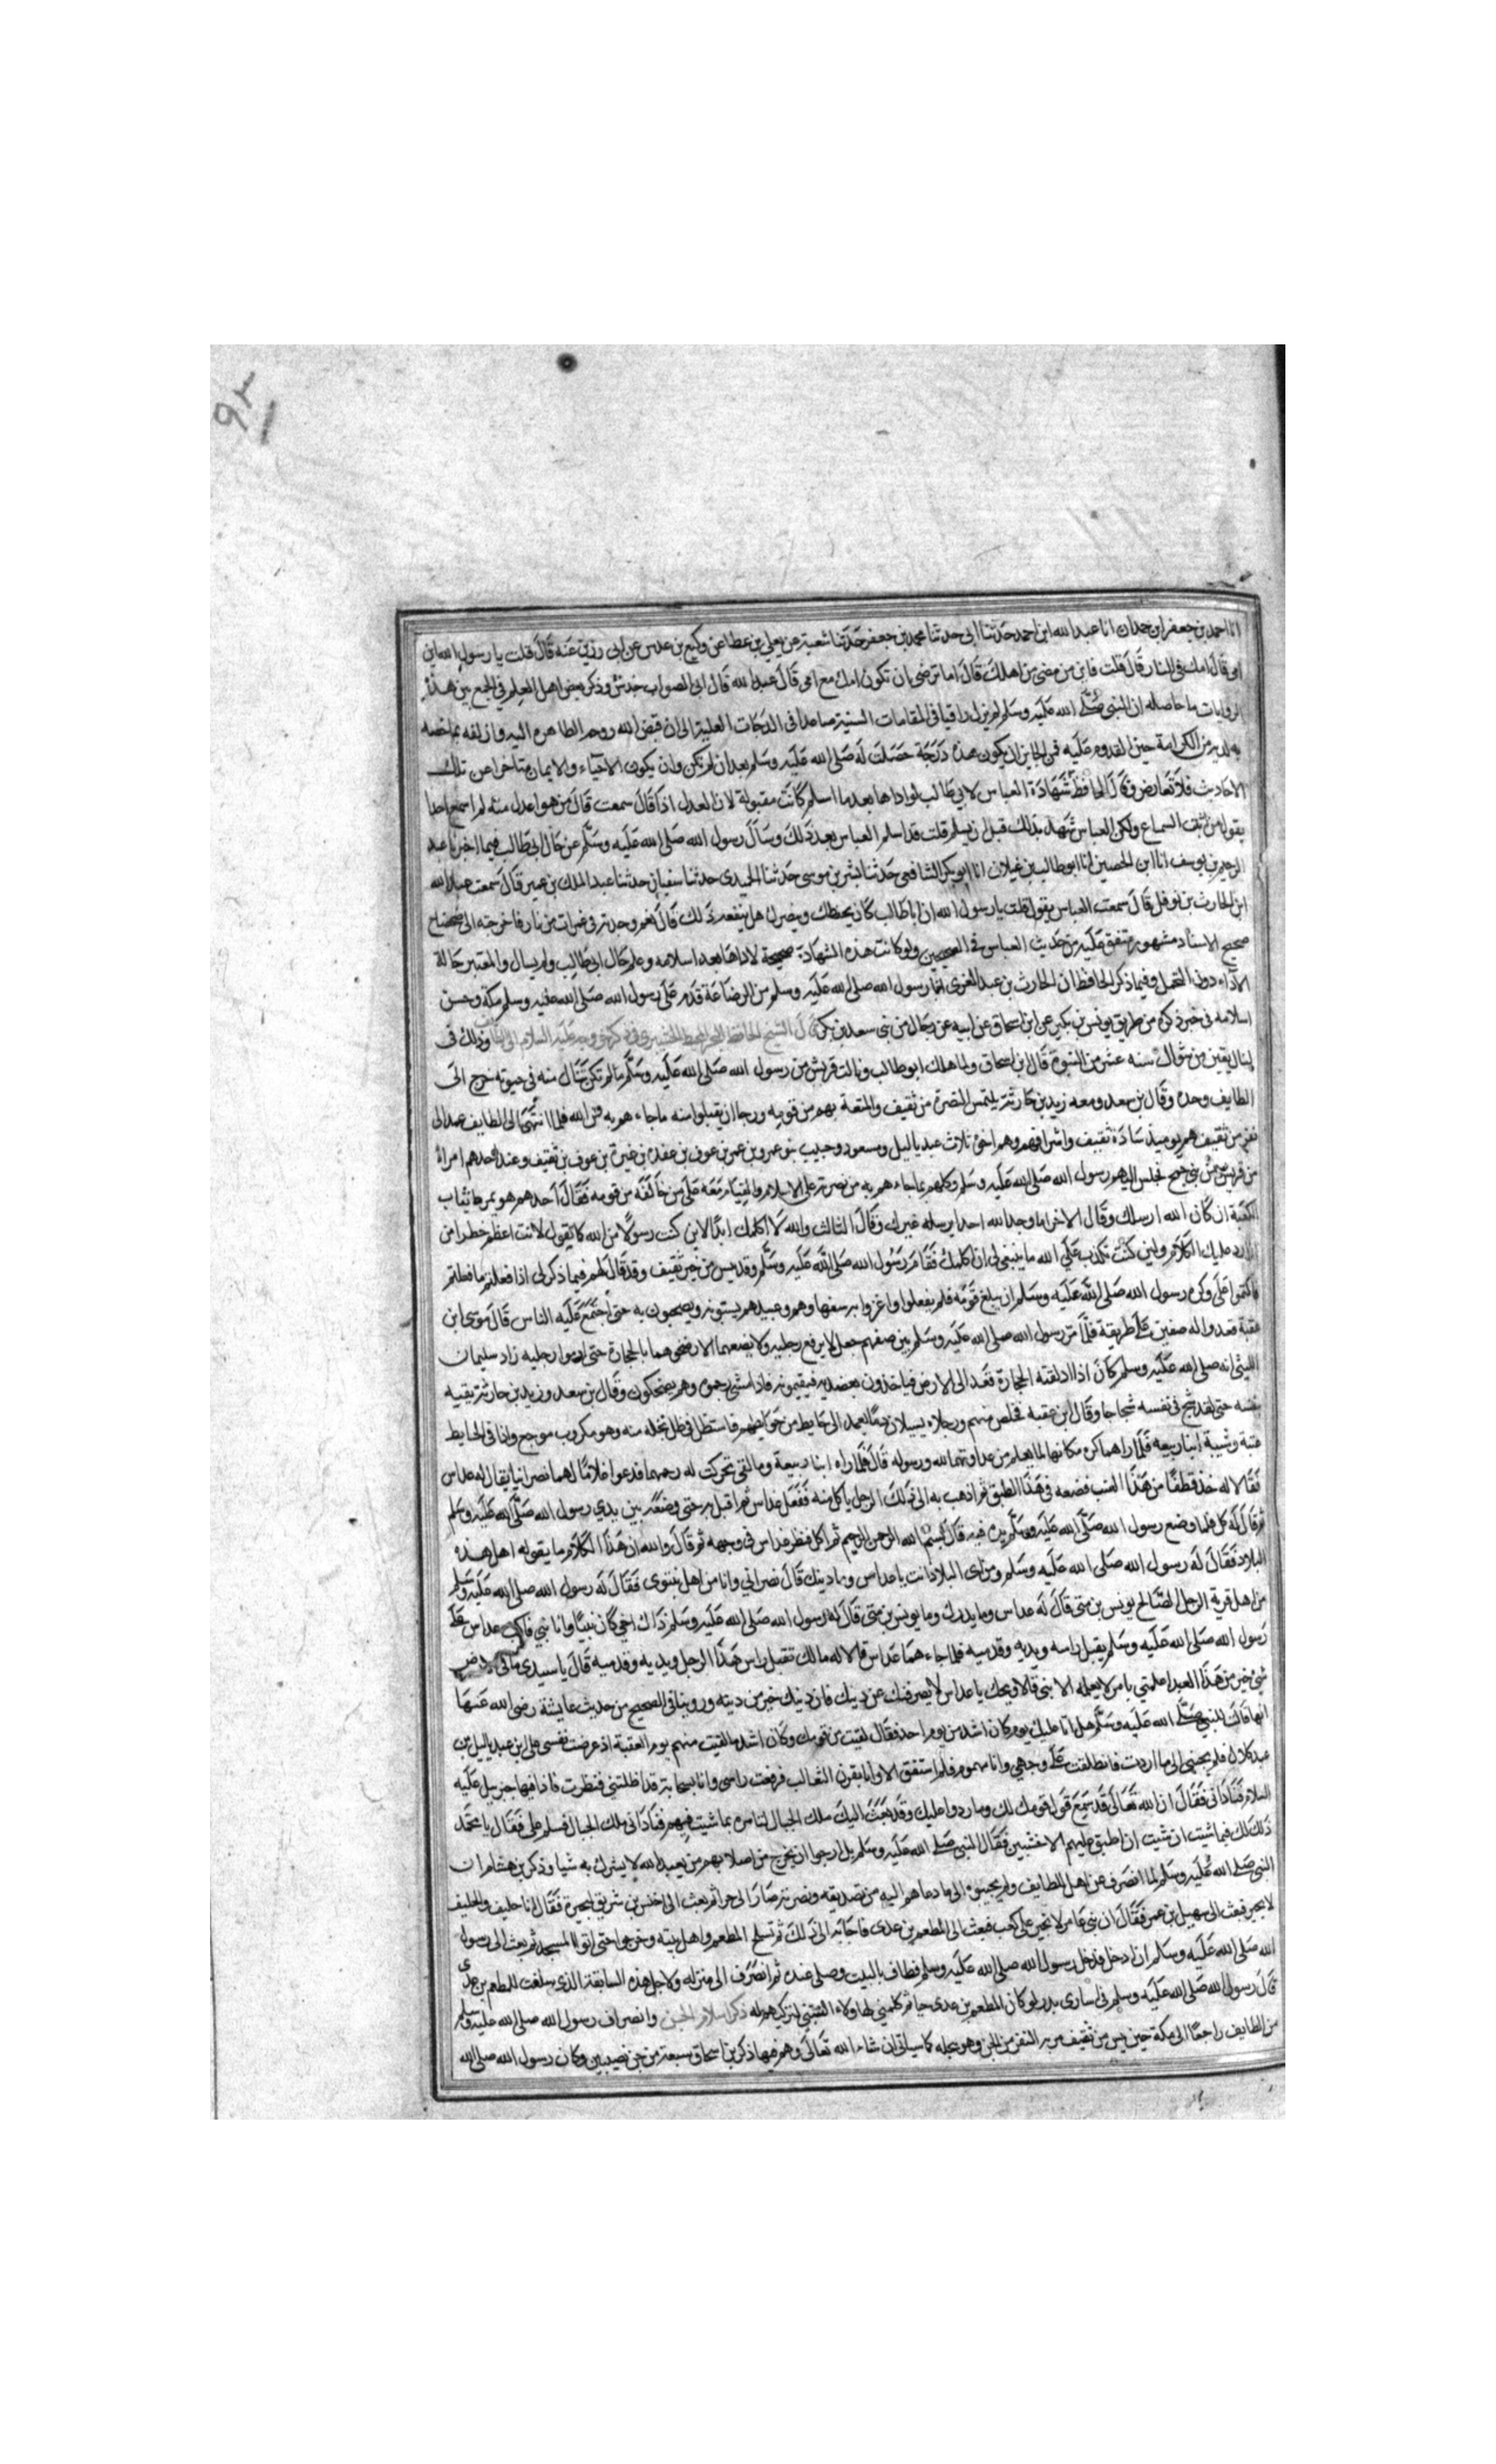 انا احمد بن جعفر ابن حمدان انا عبد الله ابن احمد حدثنا ابى حدثنا محمد بن جعفر حدثنا شعبة عن يعلي بن عطا عن وكيع بن عدس عن ابى رزين عنه قال قلت يا رسول الله اين
امى قال امك فى النار قال قلت فاين من مضى من اهلك قال اما ترضى ان تكون امك مع امى قال عبد الله قال ابى الصواب حدس وذكر بعض اهل العلم فى الجمع بين هذه
الروايات ما حاصله ان النبى صلى الله عليه وسلم لم يزل راقيا فى المقامات السنية صاعدا فى الدرجات العلية الى ان قبض الله روحه الطاهرة اليه وازلفه بما خصه
به لديه من الكرامة حين القدوم عليه فمن الجايز ان يكون هذه درجة حصلت له صلى الله عليه وسلم بعد ان لم تكن وان يكون الاحياء والايمان متاخرا عن تلك
الاحاديث فلا تعارض وقال الحافظ شهادة العباس لابى طالب لو اداها بعد ما اسلم كانت مقبولة لان العدل اذا قال سمعت قال من هو اعدل منه لم اسمع اخذ
بقول من اثبت السماع ولكن العباس شهد بذلك قبل ان يسلم قلت قد اسلم العباس بعد ذلك وسأل رسول الله صلى الله عليه وسلم عن حال ابى طالب فيما اخبرنا عبد
الرحيم بن يوسف انا ابن الحصين انا ابو طالب بن غيلان انا ابو بكر الشافعى حدثنا بشر بن موسى حدثنا الحميدى حدثنا سفيان حدثنا عبد الملك بن عمير قال سمعت عبد الله
ابن الحارث بن نوفل قال سمعت العباس يقول قلت يا رسول الله ان ابا طالب كان يحفظك وينصرك هل ينفعه ذلك قال نعم وجدته فى غمرات من نار فاخرجته الى ضحضاح
صحيح الاسناد مشهور متفق عليه من حديث العباس فى الصحيحين ولو كانت هذه الشهادة صحيحة لاداها بعد اسلامه وعلم حال ابى طالب ولم يسال والمعتبر حالة
الاداء دون التحمل وفيما ذكر الحافظ ان الحارث بن عبد العزى ابا رسول الله صلى الله عليه وسلم من الرضاعة قدم على رسول الله صلى الله عليه وسلم مكة وحسن
اسلامه فى خبر ذكره من طريق يونس بن بكير عن ابن اسحاق عن ابيه عن رجال من بنى سعد بن بكر وذلك فى
ليال بقين من شوال سنه عشر من النبوة قال ابن اسحاق ولما هلك ابو طالب ونالت قريش من رسول الله صلى الله عليه وسلم ما لم تكن تنال منه فى حيوته خرج الى
الطايف وحده وقال ابن سعد ومعه زيد بن حارثة يلتمس النصرة من ثقيف والمنعة بهم من قومه ورجا ان يقبلوا منه ماجاءهم به من الله فلما انتهى الى الطايف عمد الى
نفر من ثقيف هم يوميذ سادة ثقيف واشرافهم وهم اخوة ثلاث عبد ياليل ومسعود وحبيب بنو عمرو بن عمير بن عوف بن عقده بن غيرة بن عوف بن ثقيف وعند احدهم امراة
من قريش من بنى جمح فجلس اليهم رسول الله صلى الله عليه وسلم وكلمهم بما جاءهم به من نصرته على الاسلام والقيام معه على من خالفه من قومه فقال احدهم هو يمرط ثياب
الكعبة ان كان الله ارسلك وقال الاخر اما وجد الله احدا يرسله غيرك وقال الثالث والله لا اكلمك ابدا لاين كنت رسولا من الله كما يقول لانت اعظم خطرا من
ان ارد عليك الكلام ولين كنت تكذب على الله ما ينبغى لى ان اكلمك فقام رسول الله صلى الله عليه وسلم وقد يس من خير ثقيف وقد قال لهم فيما ذكر لى اذا فعلتم ما فعلتم
فاكتموا على وكره رسول الله صلى الله عليه وسلم ان يبلغ قومه فلم يفعلوا واغروا به سفهاءهم وعبيدهم يسبونه ويصيحون به حتى اجتمع عليه الناس قال موسى ابن
عقبة قعدوا له صفين على طريقه فلما مر رسول الله صلى الله عليه وسلم بين صفهم جعل لا يرفع رجليه ولا يضعهما الا رضخوهما بالحجارة حتى ادموا رجليه زاد سليمان
التيمى انه صلى الله عليه وسلم كان اذا ادلقته الحجارة قعد الى الارض فياخذون بعضديه فيقيمونه فاذا مشى رجموه وهم يضحكون وقال ابن سعد وزيد بن حارثة يقيه
بنفسه حتى لقد شج فى نفسه شجاجا وقال ابن عقبه فخلص منهم ورجلاه يسيلان دما فعمد الى حايط من حوايطهم فاستظل فى ظل نخله منه وهو مكروب موجع واذا فى الحايط
عتبة وشيبة ابنا ربيعه فلما راهما كره مكانهما لما يعلم من عداوتهما لله ورسوله قال فلما راه ابنا ربيعة وما لقى تحركت له رحمهما فدعوا غلاما لهما نصرانيا يقال له عداس
فقالا له خذ قطفا من هذا العنب فضعه فى هذا الطبق ثم اذهب به الى ذلك الرجل ياكل منه ففعل عداس ثم اقبل به حتى وضعه بين يدى رسول الله صلى الله عليه وسلم
ثم قال له كل فلما وضع رسول الله صلى الله عليه وسلم يده فيه قال بسم الله الرحمن الرحيم ثم اكل فنظر عداس فى وجهه ثم قال والله ان هذا الكلام ما يقوله اهل هذه
البلاد فقال له رسول الله صلى الله عليه وسلم ومن اى البلاد انت يا عداس وما دينك قال نصرانى وانا من اهل نينوى فقال له رسول الله صلى الله عليه وسلم
من اهل قرية الرجل الصالح يونس بن متى قال له عداس وما يدرك وما يونس بن متى قال له رسول الله صلى الله عليه وسلم ذاك اخى كان نبيا وانا نبى فاكب عداس على
رسول الله صلى الله عليه وسلم يقبل راسه ويديه وقدميه فلما جاءهما عداس قالا له مالك تقبل راس هذا الرجل ويديه وقدميه قال يا سيدى ما فى الارض
شئ خير من هذا لقد اعلمنى بامر لا يعلمه الا نبى قالا ويحك يا عداس لا يصرفنك عن دينك فان دينك خير من دينه وروينا فى الصحيح من حديث عايشة رضى الله عنها
انها قالت للنبى صلى الله عليه وسلم هل اتا عليك يوم كان اشد من يوم احد فقال لقيت من قومك وكان اشد ما لقيت منهم يوم العقبة اذ عرضت نفسى على ابن عبد ياليل بن
عبد كلال فلم يجبنى الى ما اردت فانطلقت على وجهى وانا مهموم فلم استفق الا وانا بقرن الثعالب فرفعت راسى وانا بسحابة قد اظلتنى فنظرت فاذا فيها جبريل عليه
السلام فنادانى فقال ان الله تعالى قد سمع قول قومك لك وما ردوا عليك وقد بعث اليك ملك الجبال لتامره بما شيت فيهم فنادانى ملك الجبال فسلم على فقال يا محمد
ذلك لك فيما شئت ان شيت ان اطبق عليهم الاخشبين فقال النبى صلى الله عليه وسلم بل ارجوا ان يخرج من اصلابهم من يعبد الله لا يشرك به شيا وذكر ابن هشام ان
النبى صلى الله عليه وسلم لما انصرف عن اهل الطايف ولم يجيبوه الى ما دعاهم اليه من تصديقه ونصرته صار الى حرا ثم بعث الى اخنس بن شريق ليجيره فقال انا حليف والحليف
لا يجير فبعث الى سهيل بن عمرو فقال ان بنى عامر لا تجير على كعب فبعث الى المطعم بن عدى فاجابه الى ذلك ثم تسلح المطعم واهل بيته وخرجوا حتى اتوا المسجد ثم بعث الى رسول
الله صلى الله عليه وسلم ان ادخل فدخل رسول الله صلى الله عليه وسلم فطاف بالبيت وصلى عنده ثم انصرف الى منزله ولاجل هذه السابقة الذى سلفت للمطعم بن عدى
قال رسول الله صلى الله عليه وسلم فى اسارى بدر لو كان المطعم بن عدى حيا ثم كلمنى فى هاولاء النتنى لتركتهم له ذكر اسلام الجن وانصراف رسول الله صلى الله عليه وسلم
من الطايف راجعا الى مكة حين يس من ثقيف مر به النفر من الجن وهو بنخله كما سياتى ان شاء الله تعالى وهم فيما ذكر ابن اسحاق سبعة من جن نصيبين وكان رسول الله صلى الله